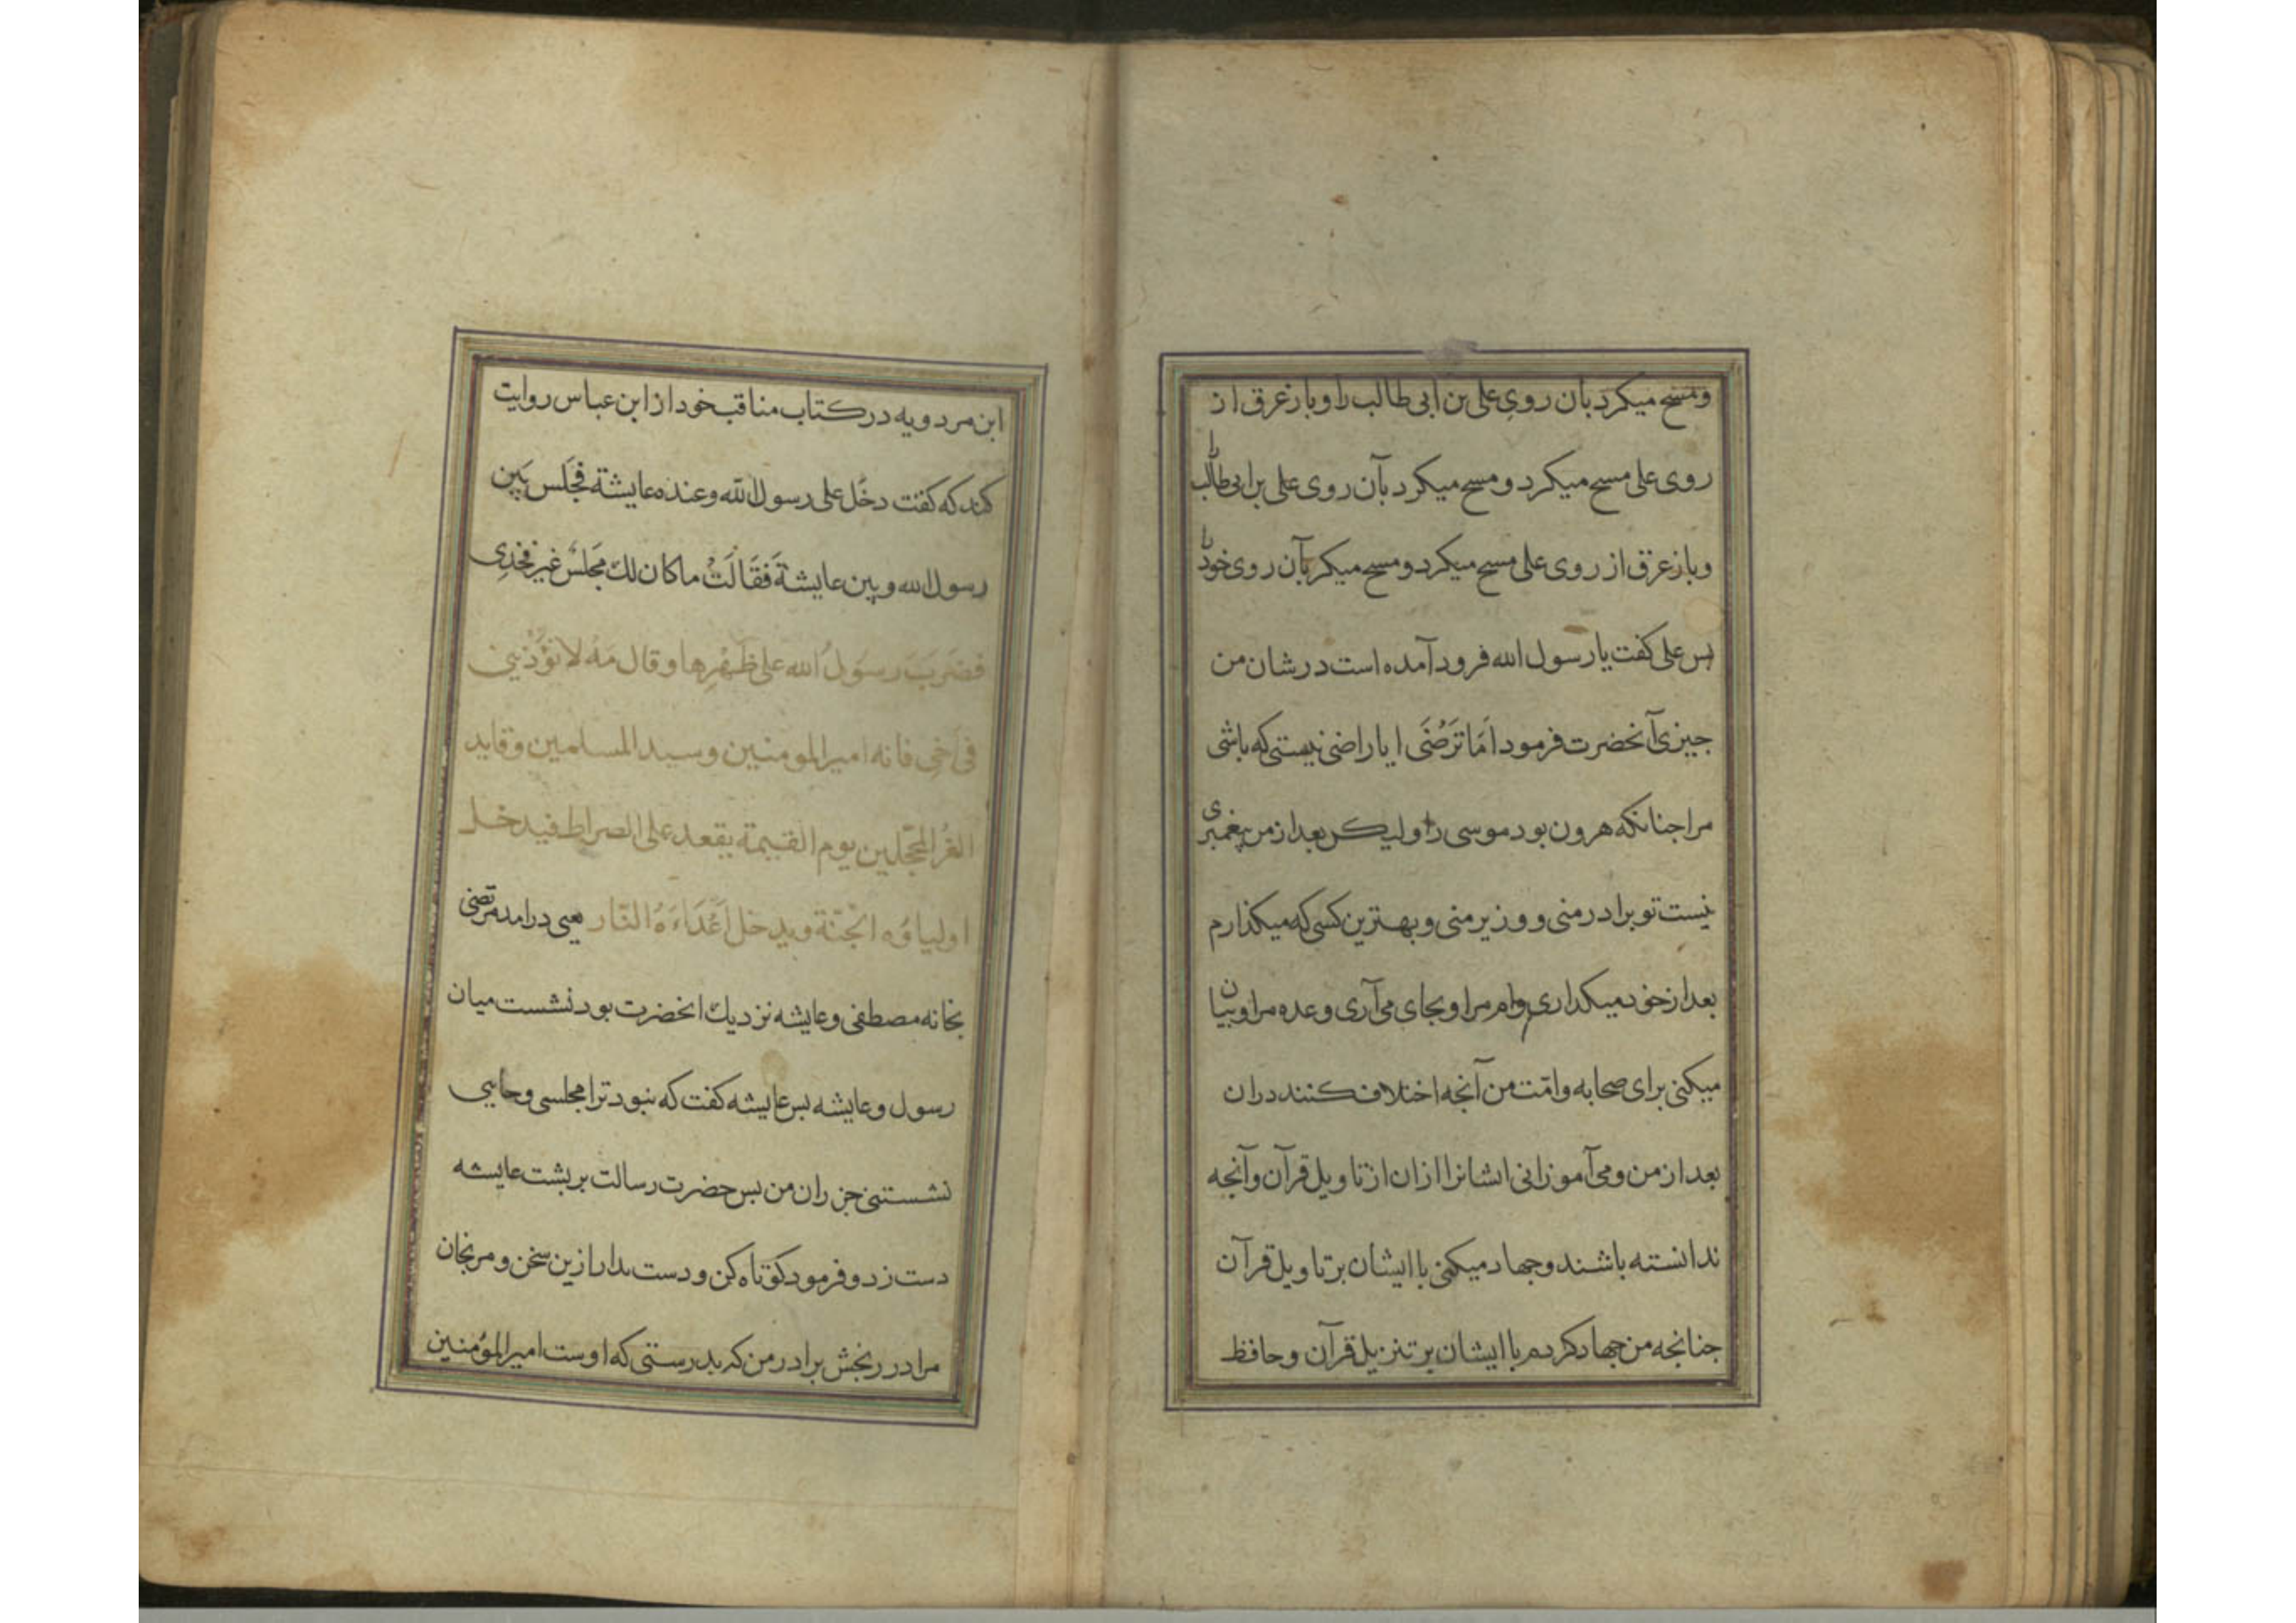 ومسح میکرد بآن رویِ علی بن ابی طالب را و باز عرق از
روی علی مسح میکرد و مسح میکرد بآن روی علی بن ابی طالب را
و باز عرق از روی علی مسح میکرد و مسح میکر بآن روی خود را
بس علی کفت یا رسول الله فرود آمده است در شان من
جیزی آنحضرت فرمود اَمَا تَرْضَی ایا راضی نیستی که باشی
مرا جنانکه هرون بود موسی را ولیکن بعد از من پیغمبری
نیست تو برادر منی و وزیر منی و بهترین کسی که میکذارم
بعد از خود میکذاری وام مرا و بجای می آری وعده مرا و بیان
میکنی برای صحابه و امّت من آنجه اختلاف کنند در ان
بعد از من و می آموزانی ایشانرا ازان از تاویل قرآن و آنجه
ندانسته باشند و جهاد میکنی با ایشان بر تاویل قرآن
جنانجه من جهاد کردم با ایشان بر تنزیل قرآن و حافظ
ابن مردویه در کتاب مناقب خود از ابن عباس روایت
کند که کفت دخَل علی رسول الله وعنده عایشة فجَلس بَین
رسول الله و بین عایشة فَقَالَتْ ما کان لك مَجلسٌ غیر فخذِی
فضَرَبَ رسَولُ الله علی ظَهْرِها و قال مَهْ لا تؤْذینی
فی اَخِی فانه امیر المومنین وسید المسلمین وقاید
الغُر المحجّلین یوم القیمة یقعد علی الصراط فیدخل
اولیاؤه الجَنّة ویدخل اَعْدَاءَهُ النّار یعنی درامد مرتضی
بخانه مصطفی و عایشه نزدیك انحضرت بود نشست میان
رسول و عایشه بس عایشه کفت که نبود ترا مجلسی و جایی
نشستنی جز ران من بس حضرت رسالت بر بشت عایشه
دست زد و فرمود کوتاه کن و دست بدار ازین سخن و مرنجان
مرا در رنجش برادر من که بدرستی که اوست امیر المؤمنین